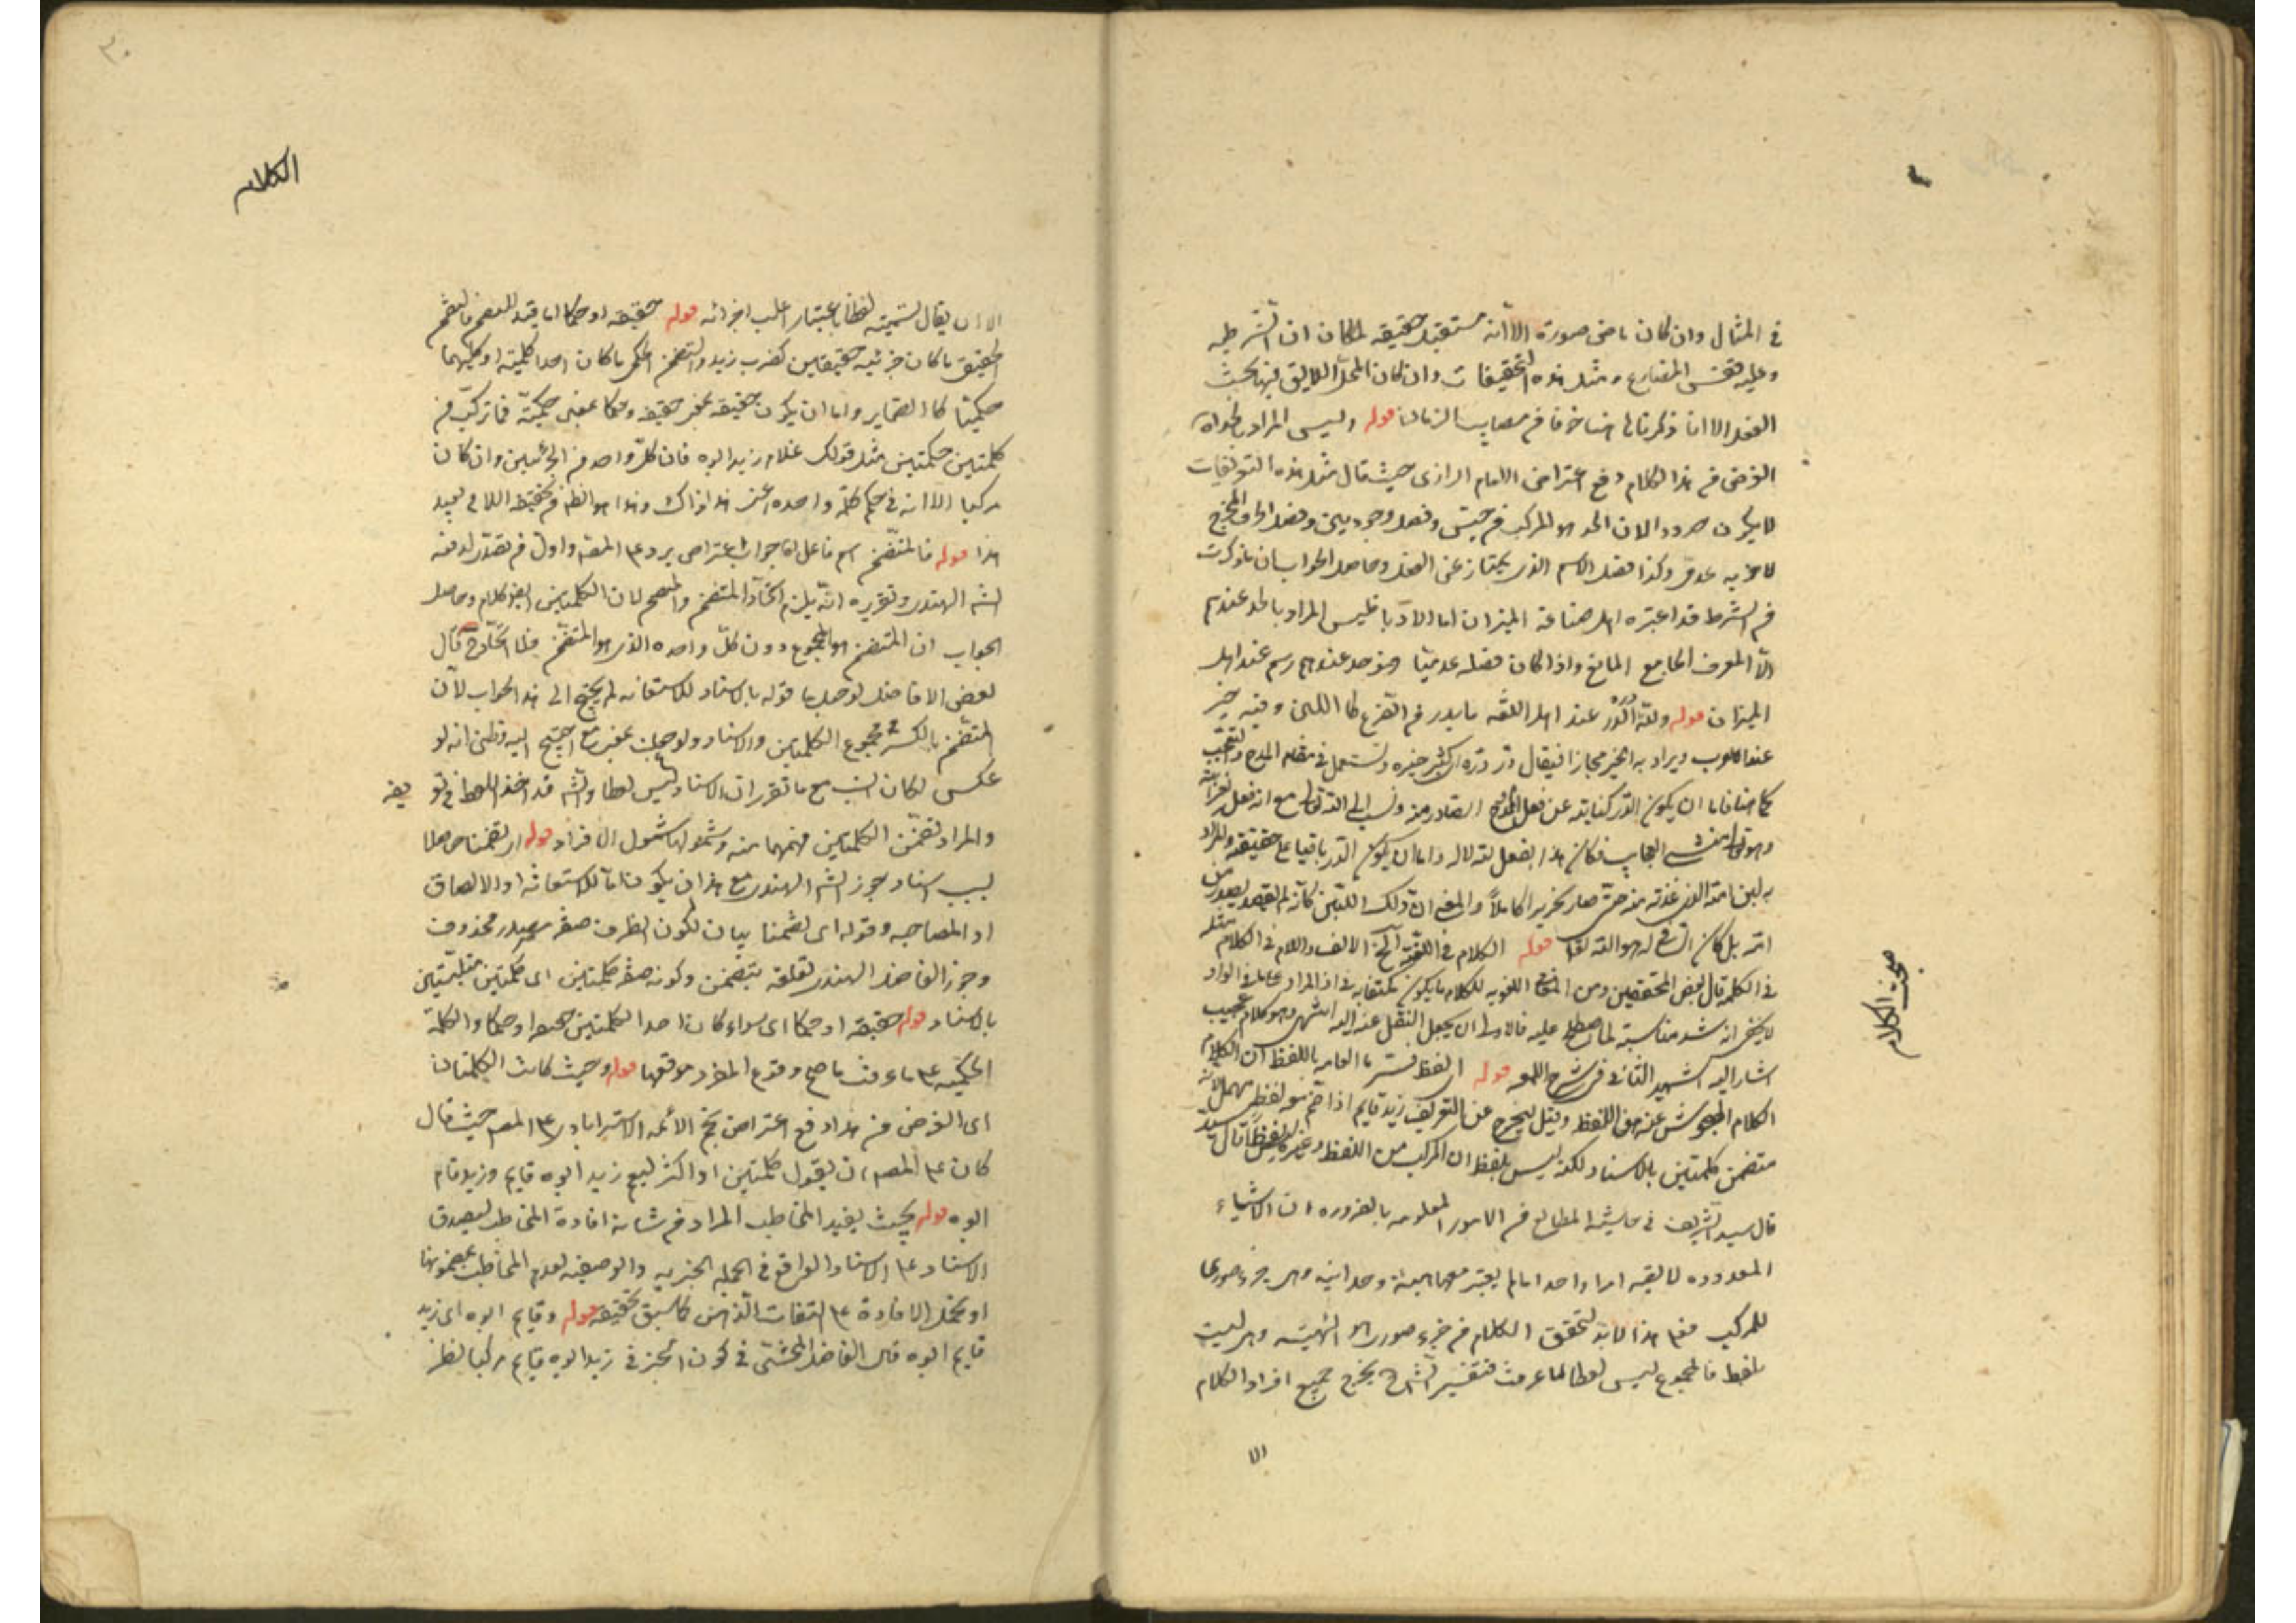 في المثال وان كان ماضي صورة الا انه مستقبل حقيقه لمكان ان الشرطيه
وعليه فقس المضارع ومثل هذه التحقيقات وان كان المحل اللايق بها بحث
الفعل الا انا ذكرناها هنا خوفا من مصايب الزمان قوله وليس المراد بالحد اه
الغرض من هذا الكلام دفع اعتراض الامام الرازي حيث قال مثل هذه التعريفات
لا يكون حدودا لان الحد هو المركب من جنس وفصل وجوديين وفصل الحرف المخرج
لا خويه عدمي وكذا فصل الاسم الذي يمتاز عن الفعل وحاصل الجواب ان ما ذكرت
من الشرط قد اعتبره اهل صناعة الميزان اما الادبا فليس المراد بالحد عندهم
الا المعرف الجامع المانع واذا كان فصله عدميا فهو حد عندهم رسم عند اهل
الميزان قوله ولله الدر عند اهل اللغه ما يدر من الضرع كا اللبن وفيه خير
عند العرب ويراد به الخير مجازا فيقال در دره اي كثر خيره ويستعمل في مقام المدح والتعجب
كما هنا فاما ان يكون الدر كناية عن فعل الممدوح الصادر منه ونسب الى الله تعالى مع انه فعل لغرابته
وهو تعالى منشي العجايب فكان هذا الفعل لله لا له واما ان يكون الدر باقيا على حقيقته والمراد
به لبن امه الذي غذته منه حتى صار نحريرا كاملا والمعنى ان ذلك اللبن كانه لم يقصد بصدور من
امه بل كان الساقي له هو الله تعالى قوله الكلام في اللغه الخ الالف واللام في الكلام مثله
في الكلمة قال بعض المحققين ومن المعاني اللغويه للكلام ما يكون مكتفا به في اداء المراد
لا يخفى انه اشد مناسبة لما اصطلح عليه فالاولى ان يجعل النقل عنه اليه انتهى وهو كلام عجيب
اشار اليه الشهيد الثاني في شرح قوله اي لفظ فسر ما العامه باللفظ لان الكلام
الكلام المبحوث عنه هو اللفظ وقيل ليخرج عن التعريف زيد قايم اذا ضم معه لفظ مهمل لانه
متضمن كلمتين بالاسناد لكنه ليس بلفظ لان المركب من اللفظ وغيره ليس لفظا قال سيد
قال سيد الشريف في حاشية المطالع من الامور المعلومه بالضروره ان الاشياء
المعدوده لا يصير امرا واحدا ما لم يعتبر معها هيئة وحدانيه وهي جزء صوري
للمركب فعلى هذا لابد لتحقق الكلام من جزء صوري هو الهيئه وهي ليست
بلفظ فالمجموع ليس لفظا لما عرفت فتفسير الشارح يخرج جميع افراد الكلام
الا
مبحث الكلام
الكلام
الا ان يقال تسميته لفظا باعتبار اغلب اجزائه قوله حقيقه او حكما اما قيد للتضمن فالتضمن
الحقيقي ما كان جزئيه حقيقيين كضرب زيد والتضمن الحكمي ما كان احدا كلميته او كليهما
حكميتا كا الضماير واما ان يكون حقيقه بمعنى حقيقيه وحكما بمعنى حكميه فما تركب من
كلمتين حكمتين مثل قولك غلام زيد ابوه فان كل واحد من الجزئين وان كان
مركبا الا انه في حكم كلمة واحده اعني هذا ذاك وهذا هو الظاهر من تحقيقه اللاتي بعيد
هذا قوله فالمتضمن اسم فاعل اه جواب اعتراض يرد على المصنف واول من تصدى لدفعه
الشارح الهندي وتقريره انه يلزم اتحاد المتضمن والمتضمن لان الكلمتين ايضا كلام وحاصل
الجواب ان المتضمن هو المجموع دون كل واحده الذي هو المتضمن فلا اتحاد ح قال
بعض الافاضل لو جعل با قوله بالاسناد للاستعانه لم يحتج الى هذا الجواب لان
المتضمن بالكسر ح مجموع الكلمتين والاسناد ولو جعلت بمعنى مع احتيج اليه وظني انه لو
عكس لكان انسب مع ما تقرر ان الاسناد ليس لفظا والشارح قد اخذ اللفظ في تعريفه
والمراد تضمن الكلمتين فهمهما منه وشمولهما شمول الافراد قوله اي تضمنا حاصلا
بسبب اسناد جوز الشارح الهندي مع هذا ان يكون الباء للاستعانه او الالصاق
او المصاحبه وقوله اي تضمنا بيان لكون الظرف صفه مصدر محذوف
وجوز الفاضل الهندي تعلقه بتضمن وكونه صفه كلمتين اي كلمتين متلبستين
بالاسناد قوله حقيقه او حكما اي سواء كان احدا الكلمتين حقيقه او حكما والكلمة
الحكميه على ما عرفت ما صح وقوع المفرد موقعها قوله وحيث كانت الكلمتان
اي الغرض من هذا دفع اعتراض نجم الائمه الاسترابادي على المصنف حيث قال
كان على المصنف ان يقول كلمتين او اكثر ليعم زيد ابوه قايم وزيد قام
ابوه قوله بحيث يفيد المخاطب المراد من شانه افادة المخاطب ليصدق
الاسناد على الاسناد الواقع في الجمله الخبريه والوصفيه لعلم المخاطب بمضمونها
او تحمل الافادة على التفات الذهن كما سبق تحقيقه قوله وقايم ابوه اي زيد
قايم ابوه قال الفاضل المحشى في كون الخبر في زيد ابوه قايم مركبا نظر